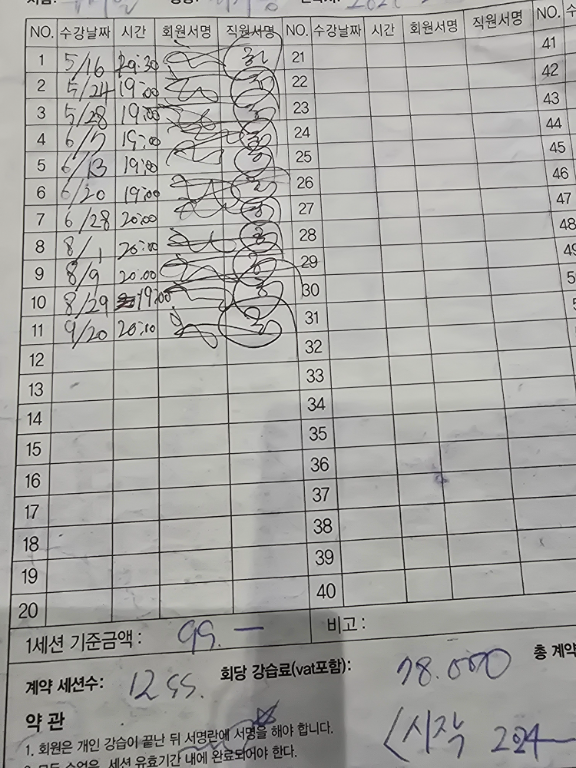 NO. 수강날짜 시간 회원서명 직원서명 NO. 수강날짜 시간 회원서명 직원서명 NO.
1 5/16 20:30 21 41
2 5/24 19:00 22 42
3 5/28 19:00 23 43
4 6/7 19:00 24 44
5 6/13 19:00 25 45
6 6/20 19:00 26 46
7 6/28 20:00 27 47
8 8/1 20:00 28 48
9 8/9 20:00 29
10 8/29 19:00 30
11 9/20 20:10 31
12 32
13 33
14 34
15 35
16 36
17 37
18 38
19 39
20 40
1세션 기준금액 : 99.— 비고 :
계약 세션수: 12 ss. 회당 강습료(vat포함): 78.000 총 계약
약 관
1. 회원은 개인 강습이 끝난 뒤 서명란에 서명을 해야 합니다.
시작 224
2. 모든 수업은, 세션 유효기간 내에 완료되어야 한다.